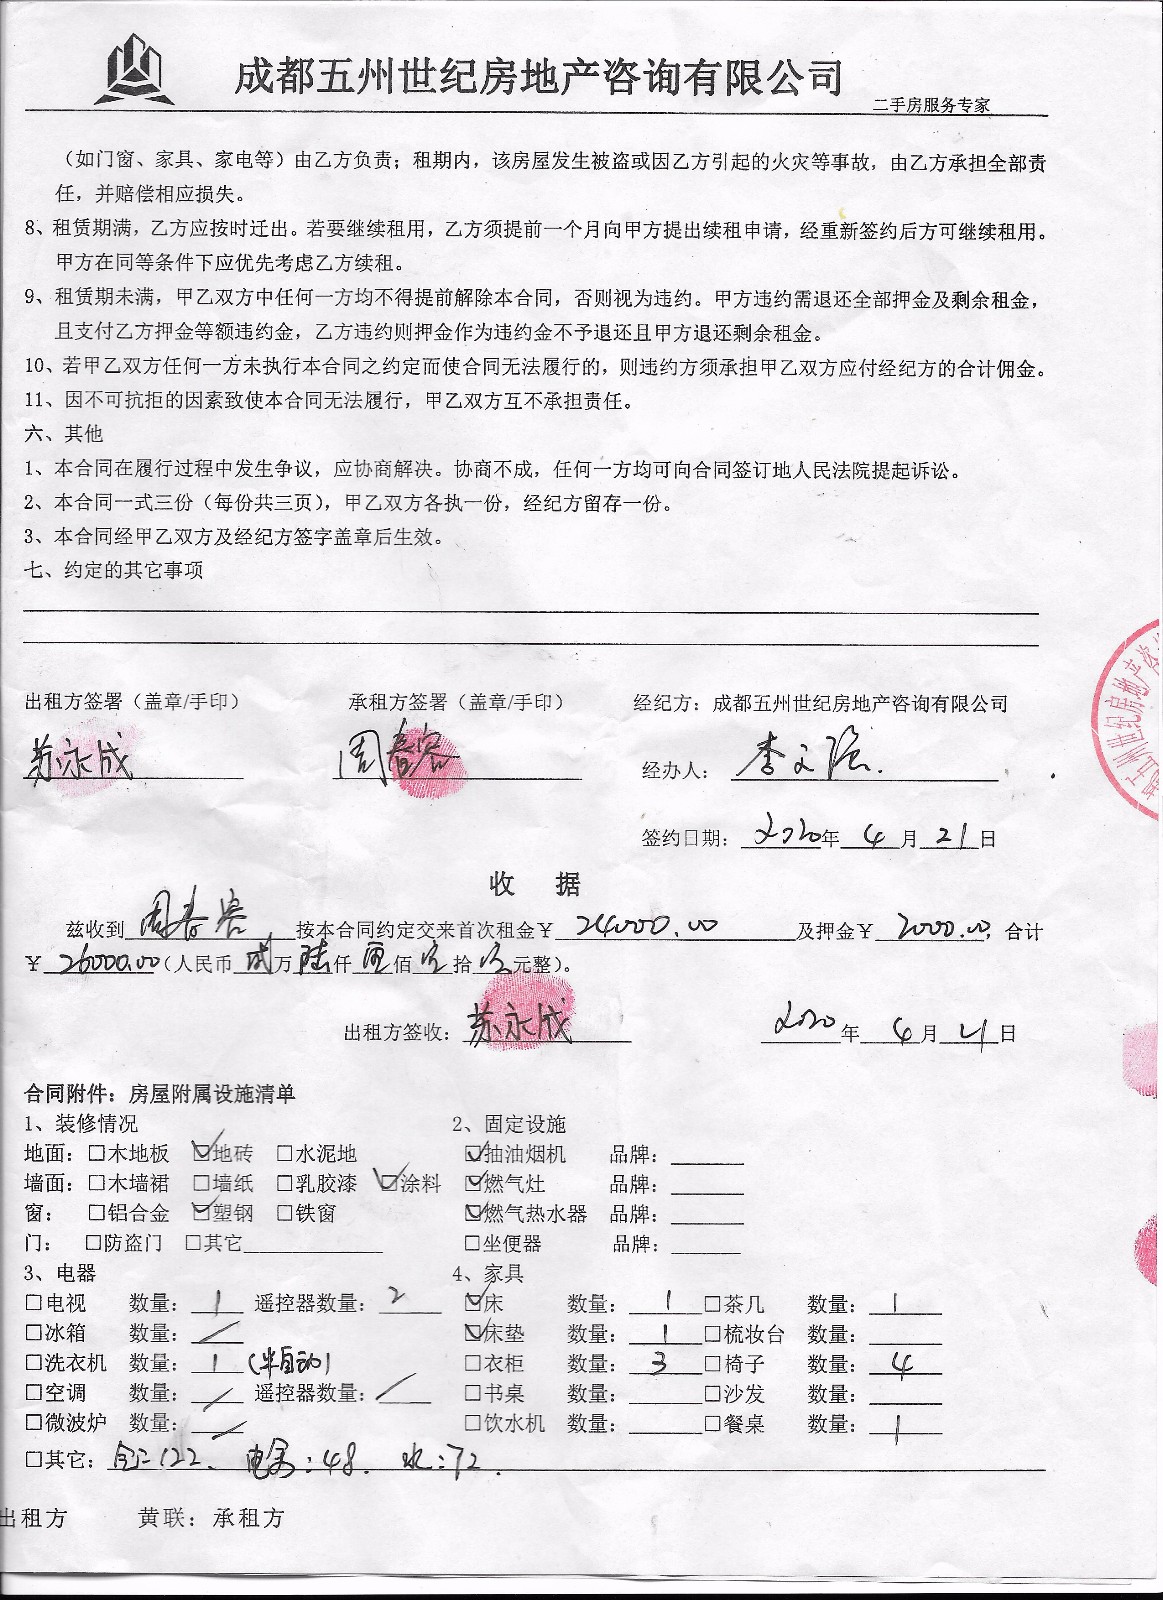 成都五州世纪房地产咨询有限公司
二手房服务专家
（如门窗、家具、家电等）由乙方负责；租期内，该房屋发生被盗或因乙方引起的火灾等事故，由乙方承担全部责
任，并赔偿相应损失。
8、租赁期满，乙方应按时迁出。若要继续租用，乙方须提前一个月向甲方提出续租申请，经重新签约后方可继续租用。
甲方在同等条件下应优先考虑乙方续租。
9、租赁期未满，甲乙双方中任何一方均不得提前解除本合同，否则视为违约。甲方违约需退还全部押金及剩余租金，
且支付乙方押金等额违约金，乙方违约则押金作为违约金不予退还且甲方退还剩余租金。
10、若甲乙双方任何一方未执行本合同之约定而使合同无法履行的，则违约方须承担甲乙双方应付经纪方的合计佣金。
11、因不可抗拒的因素致使本合同无法履行，甲乙双方互不承担责任。
六、其他
1、本合同在履行过程中发生争议，应协商解决。协商不成，任何一方均可向合同签订地人民法院提起诉讼。
2、本合同一式三份（每份共三页），甲乙双方各执一份，经纪方留存一份。
3、本合同经甲乙双方及经纪方签字盖章后生效。
七、约定的其它事项
出租方签署（盖章/手印） 承租方签署（盖章/手印） 经纪方：成都五州世纪房地产咨询有限公司
苏永成 周春容 经办人：李文
签约日期：2020年4月21日
五州世纪房地产咨
收 据
兹收到周春容按本合同约定交来首次租金￥24000.00及押金￥2000.00，合计
￥26000.00（人民币贰万陆仟零佰零拾零元整）。
出租方签收：苏永成 2020年4月21日
合同附件：房屋附属设施清单
1、装修情况 2、固定设施
地面：□木地板 ☑地砖 □水泥地 ☑抽油烟机 品牌：
墙面：□木墙裙 □墙纸 □乳胶漆 ☑涂料 ☑燃气灶 品牌：
窗： □铝合金 ☑塑钢 □铁窗 ☑燃气热水器 品牌：
门： □防盗门 □其它 □坐便器 品牌：
3、电器 4、家具
□电视 数量：1 遥控器数量：2 ☑床 数量：1 □茶几 数量：1
□冰箱 数量：/ ☑床垫 数量：1 □梳妆台 数量：
□洗衣机 数量：1（半自动） □衣柜 数量：3 □椅子 数量：4
□空调 数量：/ 遥控器数量：/ □书桌 数量： □沙发 数量：
□微波炉 数量：/ □饮水机 数量： □餐桌 数量：1
□其它： 122、 :48、 水:72.
出租方 黄联：承租方